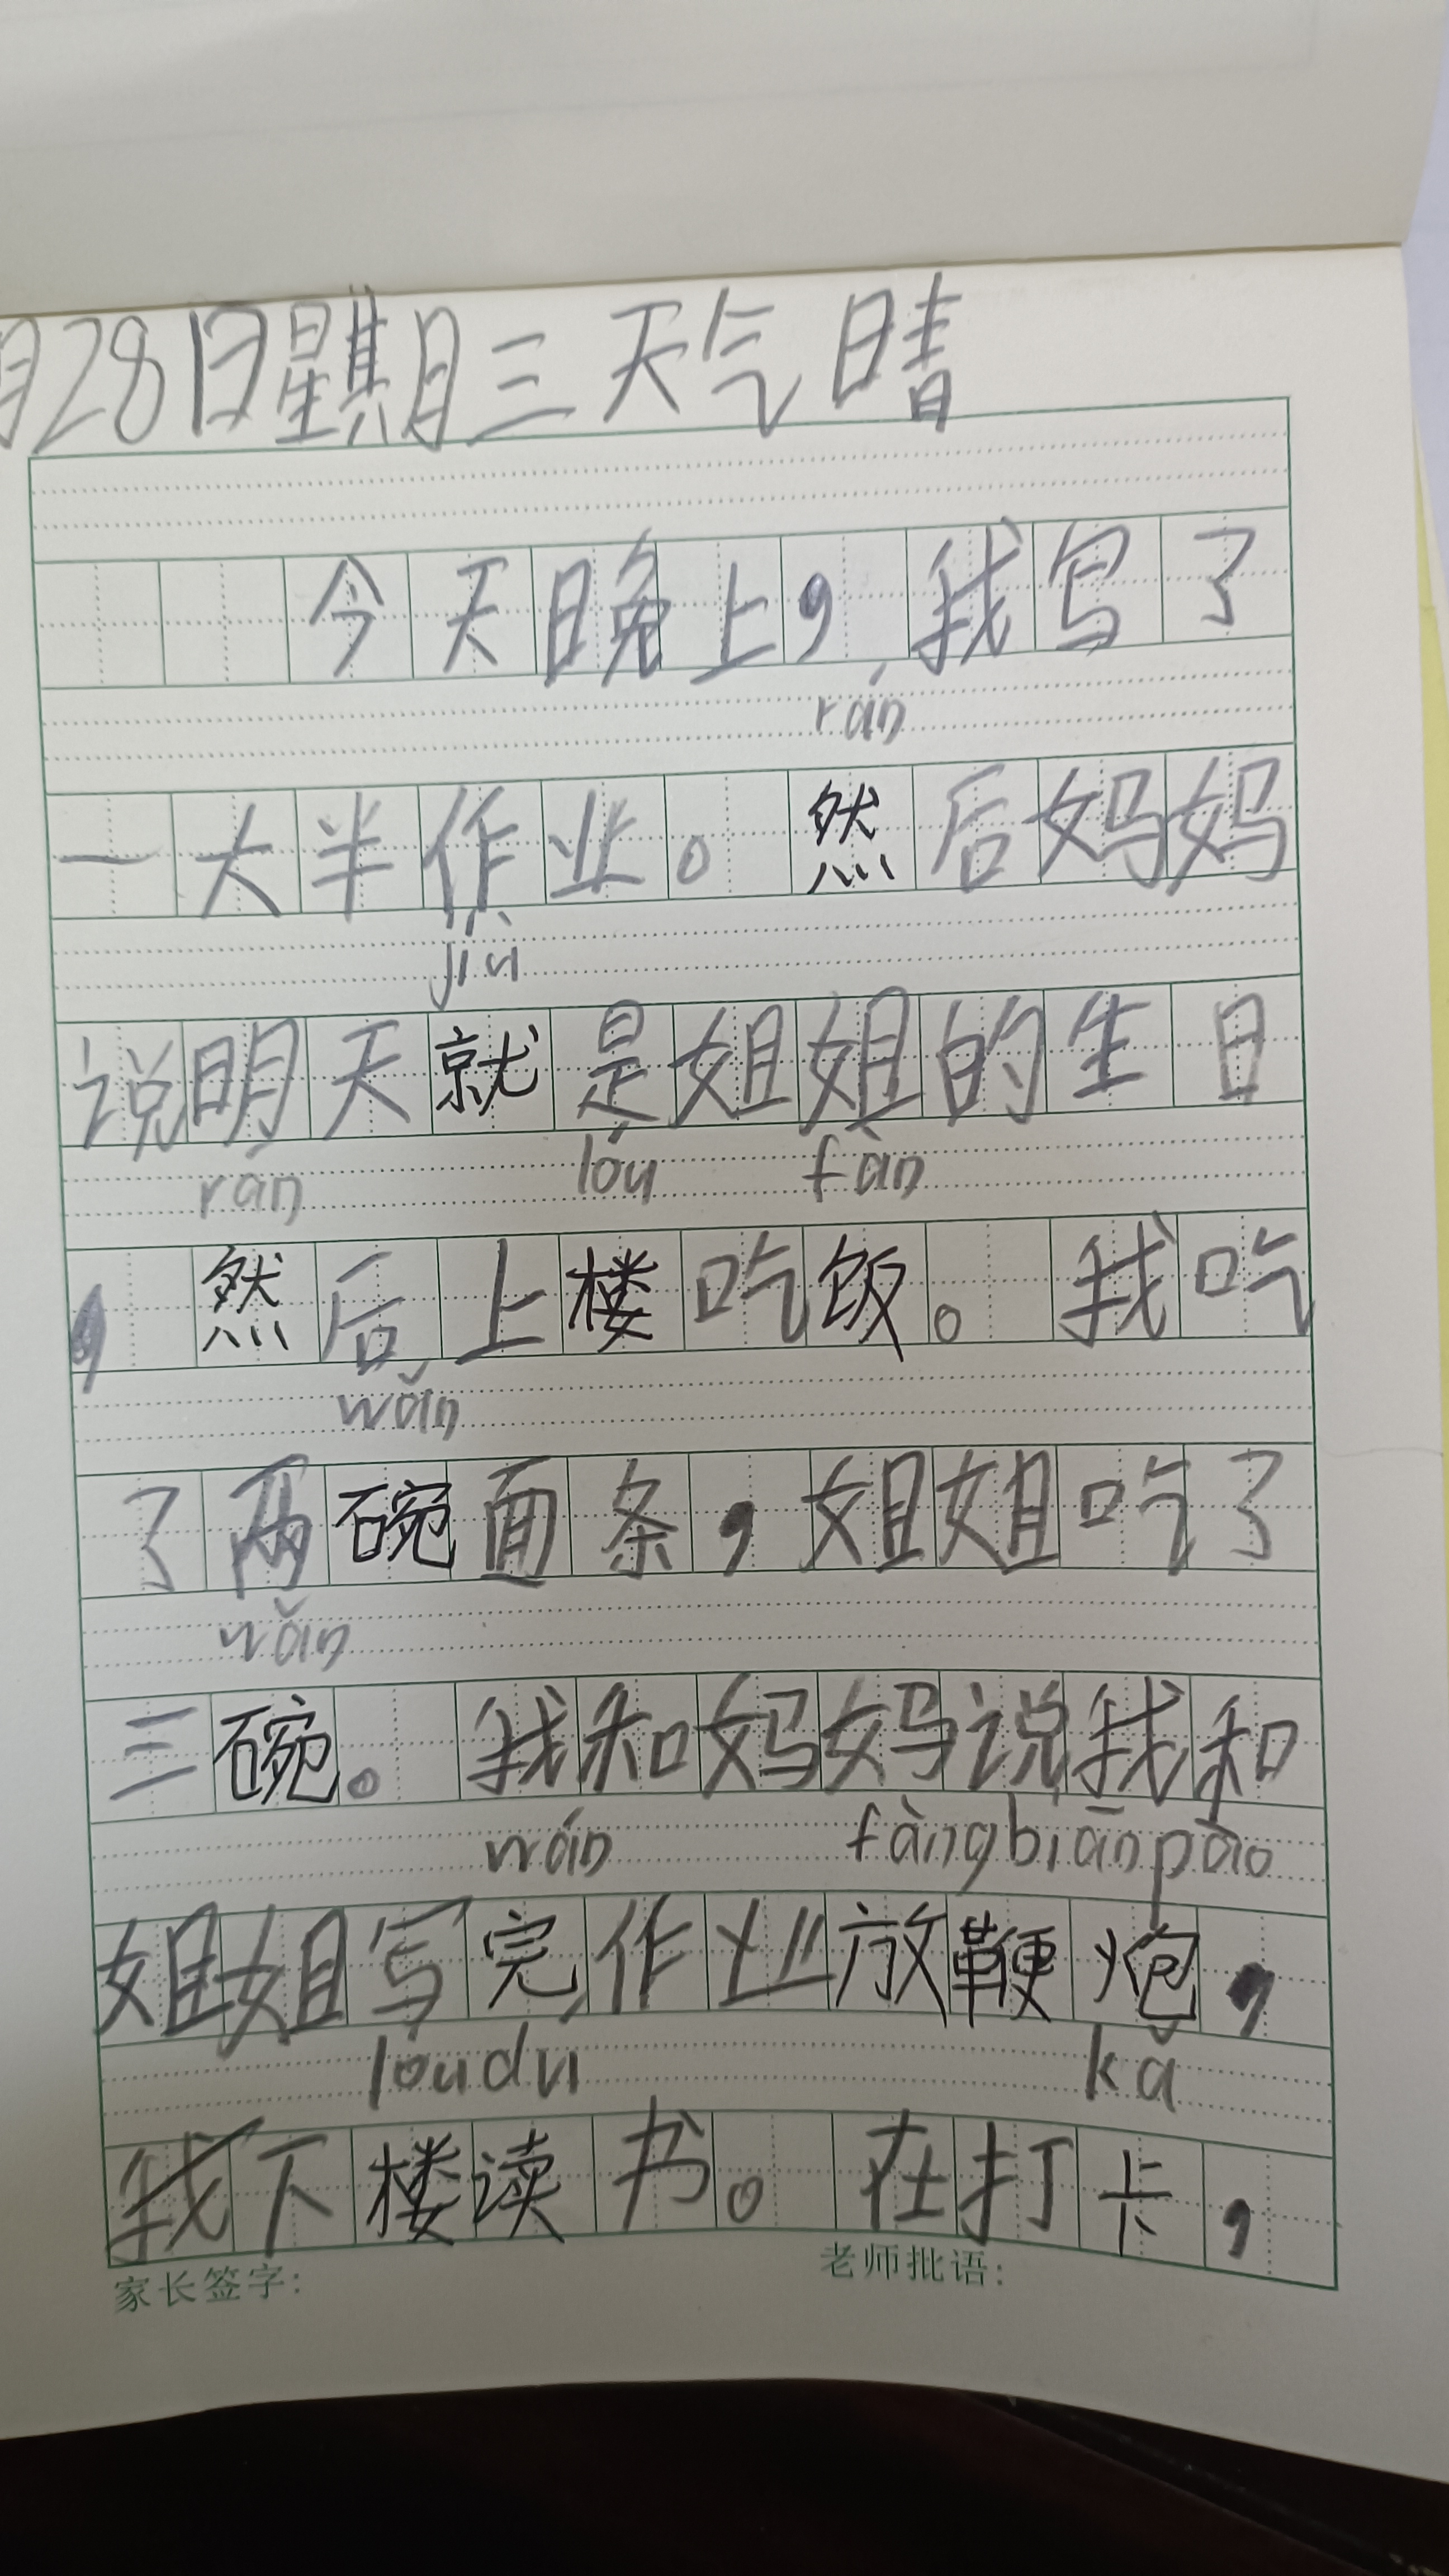 月28日星期三天气晴
今天晚上，我写了
rán
一大半作业。然后妈妈
jiù
说明天就是姐姐的生日
rán lóu fàn
，然后上楼吃饭。我吃
wǎn
了两碗面条，姐姐吃了
wǎn
三碗。我和妈妈说我和
wán fàngbiānpào
姐姐写完作业放鞭炮，
lóudú kǎ
我下楼读书。在打卡，
家长签字： 老师批语：